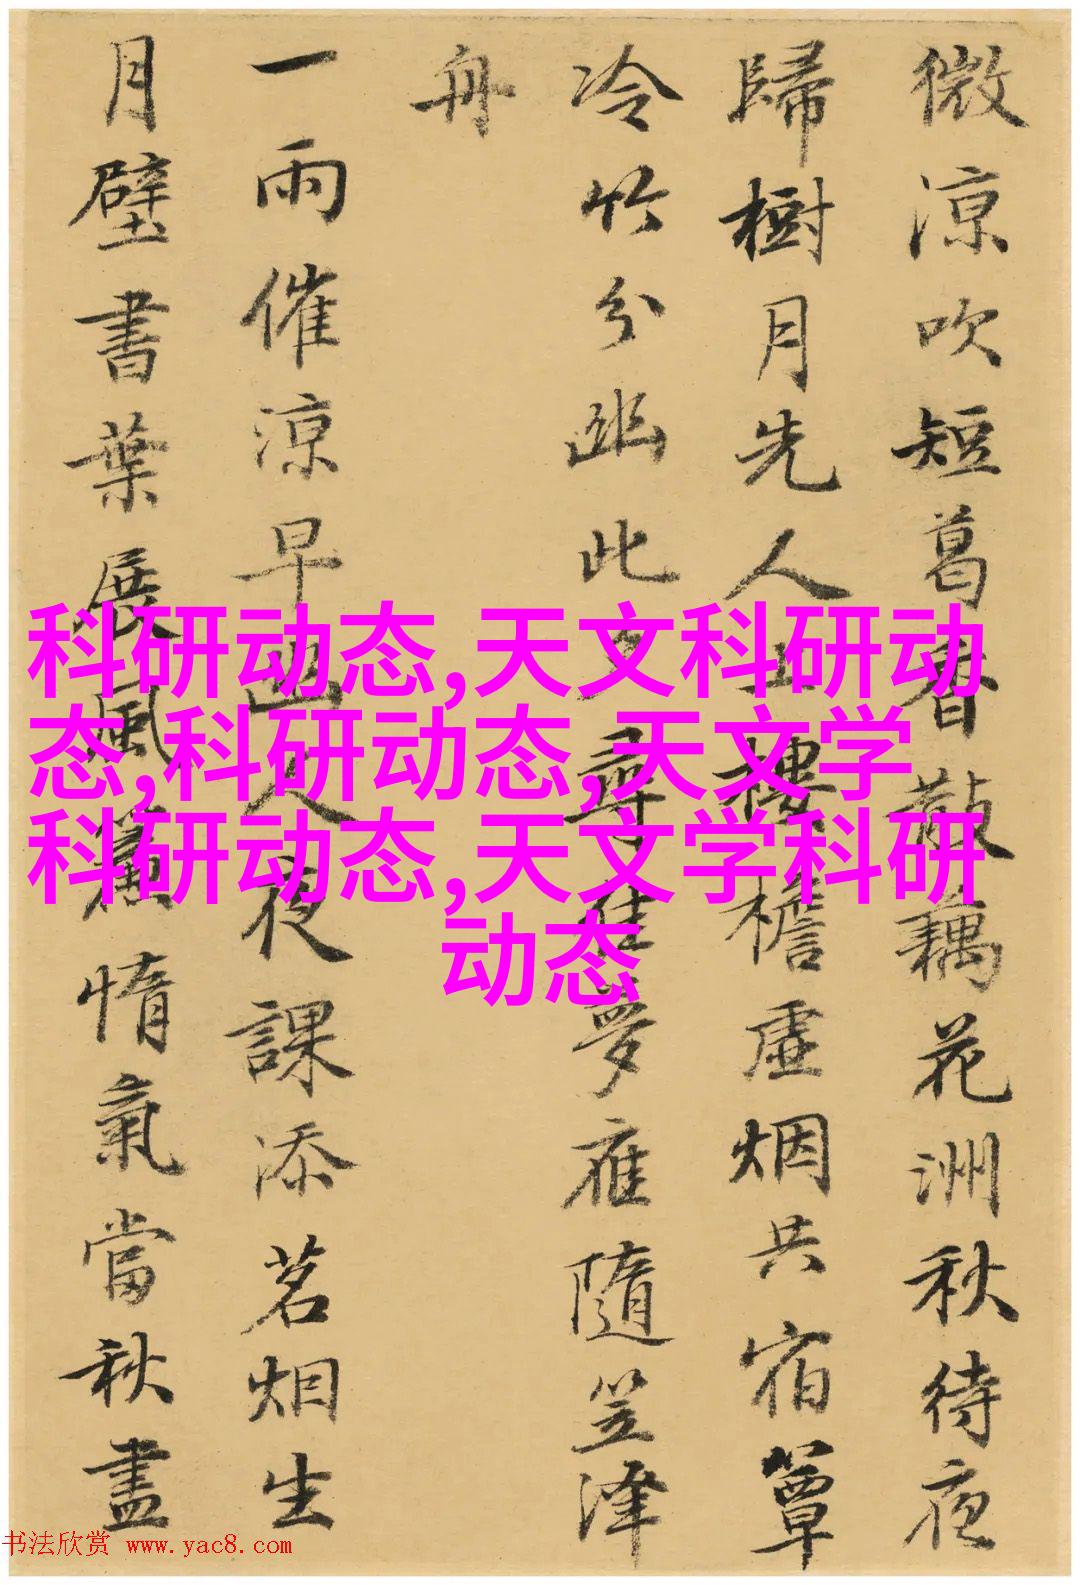 微涼吹短葛香散藕花洲秋待夜
歸樹月先人上樓檐虛烟共宿簟
冷竹分幽此夕尋佳夢雁隨笠澤
舟
一雨催涼早幽人夜課添茗烟生
月壁書葉展風簾惰氣當秋盡
科研动态,天文科研动
态,科研动态,天文学
科研动态,天文学科研
动态
书法欣赏 www.yac8.com